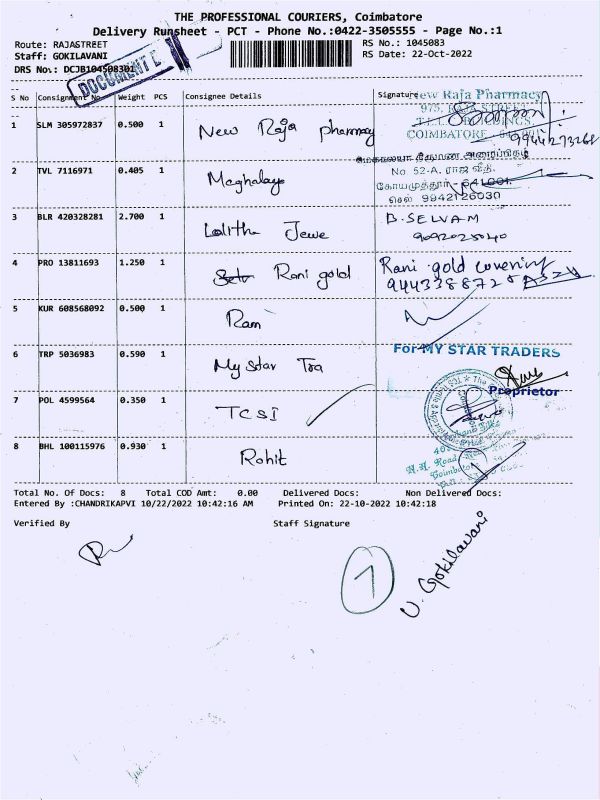 THE PROFESSIONAL COURIERS, Coimbatore
Delivery Runsheet - PCT - Phone No.:0422-3505555 - Page No.:1
Route: RAJASTREET
RS No.: 1045083
Staff: GOKILAVANI
RS Date: 22-Oct-2022
DRS No.: DCJB104508301
DOCUMENT
S No Consignment No Weight PCS Consignee Details Signature
1 SLM 305972837 0.500 1 New Raja pharmacy
New Raja Pharmacy
975,
COIMBATORE
9944273268
2 TVL 7116971 0.405 1 Meghalaya
No 52-A, ராஜ வீதி,
கோயமுத்தூர் - 641001.
செல் 9942126030
3 BLR 420328281 2.700 1 Lalitha Jewe
B. SELVAM
9092025040
4 PRO 13811693 1.250 1 Rani gold
Rani gold covering
5 KUR 608568092 0.500 1 Ram
6 TRP 5036983 0.590 1 My Star Tra
For MY STAR TRADERS
Proprietor
7 POL 4599564 0.350 1 TCSI
8 BHL 100115976 0.930 1 Rohit
Total No. Of Docs: 8 Total COD Amt: 0.00 Delivered Docs: Non Delivered Docs:
Entered By :CHANDRIKAPVI 10/22/2022 10:42:16 AM Printed On: 22-10-2022 10:42:18
Verified By Staff Signature
7
V. Gokilavani